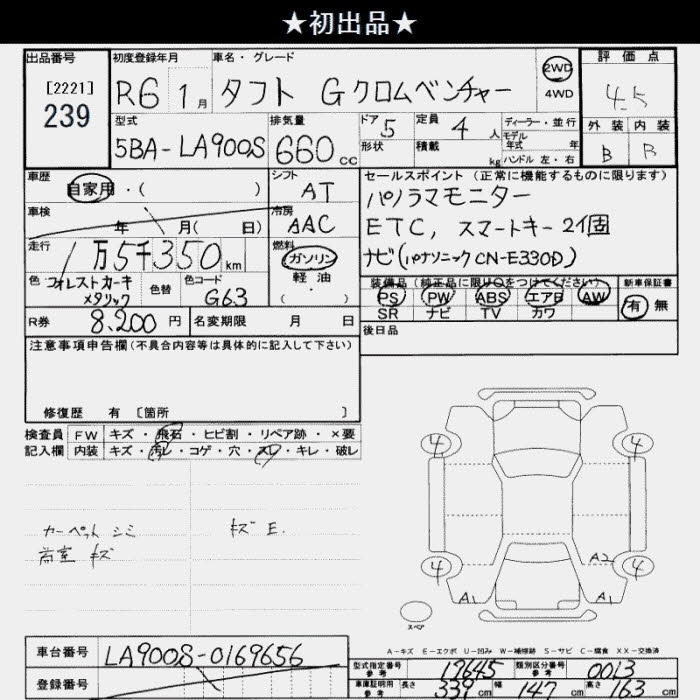 ★初出品★
出品番号
[2221]
239
初度登録年月
R6 1月
車名・グレード
タフト Gクロムベンチャー
2WD
4WD
評価点
4.5
外装 内装
B B
型式
5BA-LA900S
排気量
660cc
ドア 5
形状
定員 4人
積載 kg
ディーラー・並行
モデル年式 年
ハンドル 左・右
車歴
自家用・( )
シフト
AT
車検
年 月( 日)
冷房
AAC
走行
1万5千350km
燃料
ガソリン
軽油
( ・ )
色 フォレストカーキメタリック
色替
色コード
G63
R券 8,200円
名変期限 月 日
セールスポイント(正常に機能するものに限ります)
パノラマモニター
ETC, スマートキー2個
ナビ(パナソニックCN-E330D)
装備品(純正品に限り○をつけてください)
PS PW ABS エアB AW
SR ナビ TV カワ
新車保証書
有 無
後日品
注意事項申告欄(不具合内容等は具体的に記入して下さい)
修復歴 有 [箇所 ]
検査員記入欄
FW キズ・飛石・ヒビ割・リペア跡・×要
内装 キズ・汚レ・コゲ・穴・スレ・キレ・破レ
カーペット シミ
キズ E.
4 4
4 4
A2
A1 A1
スペア
A-キズ E-エクボ U-凹み W-補修跡 S-サビ C-腐食 XX-交換済
車台番号 LA900S-0169656
登録番号
型式指定番号 参考 19645
類別区分番号 参考 0013
車庫証明用 参考 長さ 339cm 幅 147cm 高さ 163cm